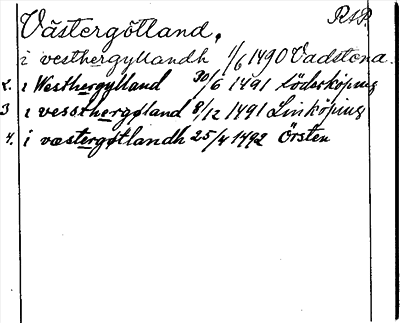 Västergötland. RAP.
i vesthergyllandh 1/6 1490 Vadstena.
2. i Westhergylland 30/6 1491 Söderköping
3 i vessthergøland 8/12 1491 Linköping
4. i væstergøtlandh 25/4 1492 Örsten